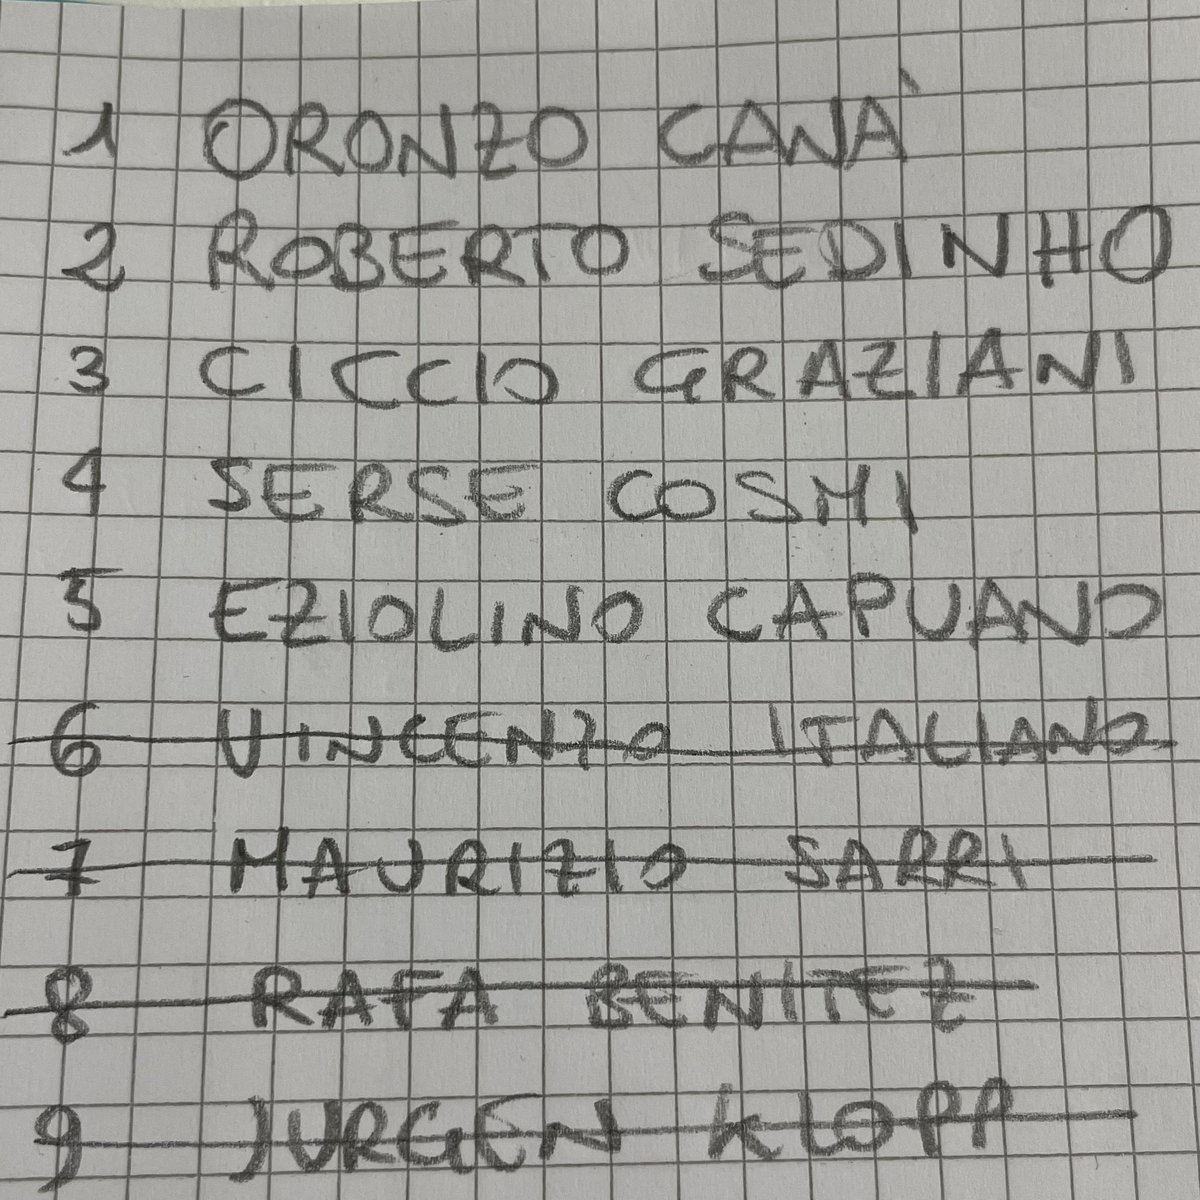 1 ORONZO CANÀ
2 ROBERTO SEDINHO
3 CICCIO GRAZIANI
4 SERSE COSMI
5 EZIOLINO CAPUANO
6 VINCENZO ITALIANO
7 MAURIZIO SARRI
8 RAFA BENITEZ
9 JURGEN KLOPP